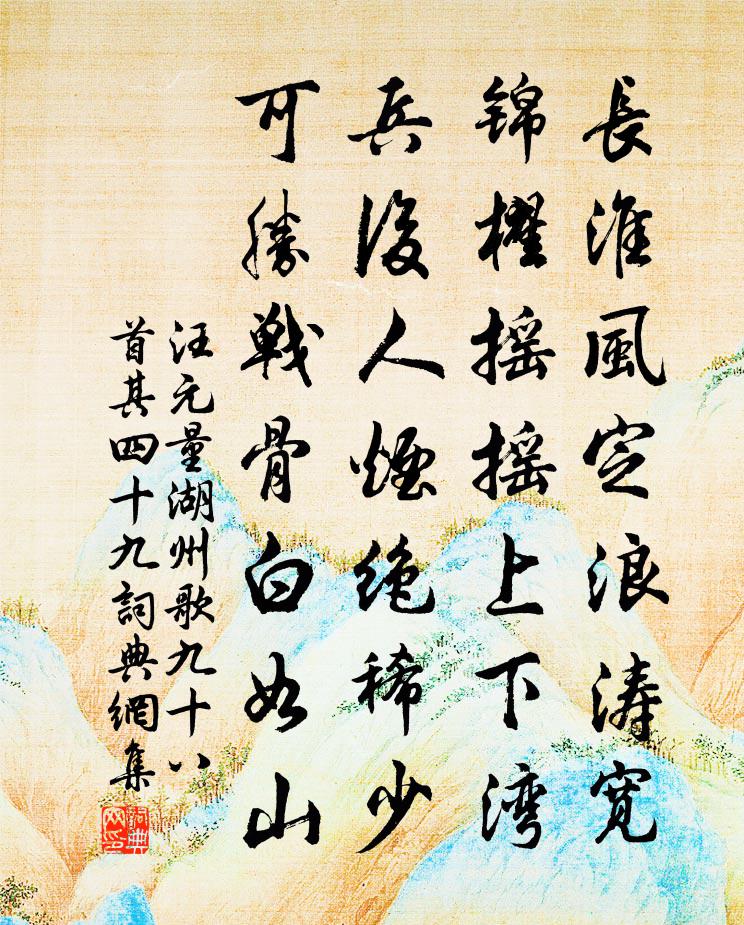 長淮風定浪涛寬
錦櫂摇摇上下湾
兵後人煙絶稀少
可勝戰骨白如山
汪元量湖州歌九十八
首其四十九詞典網集
詞典網印